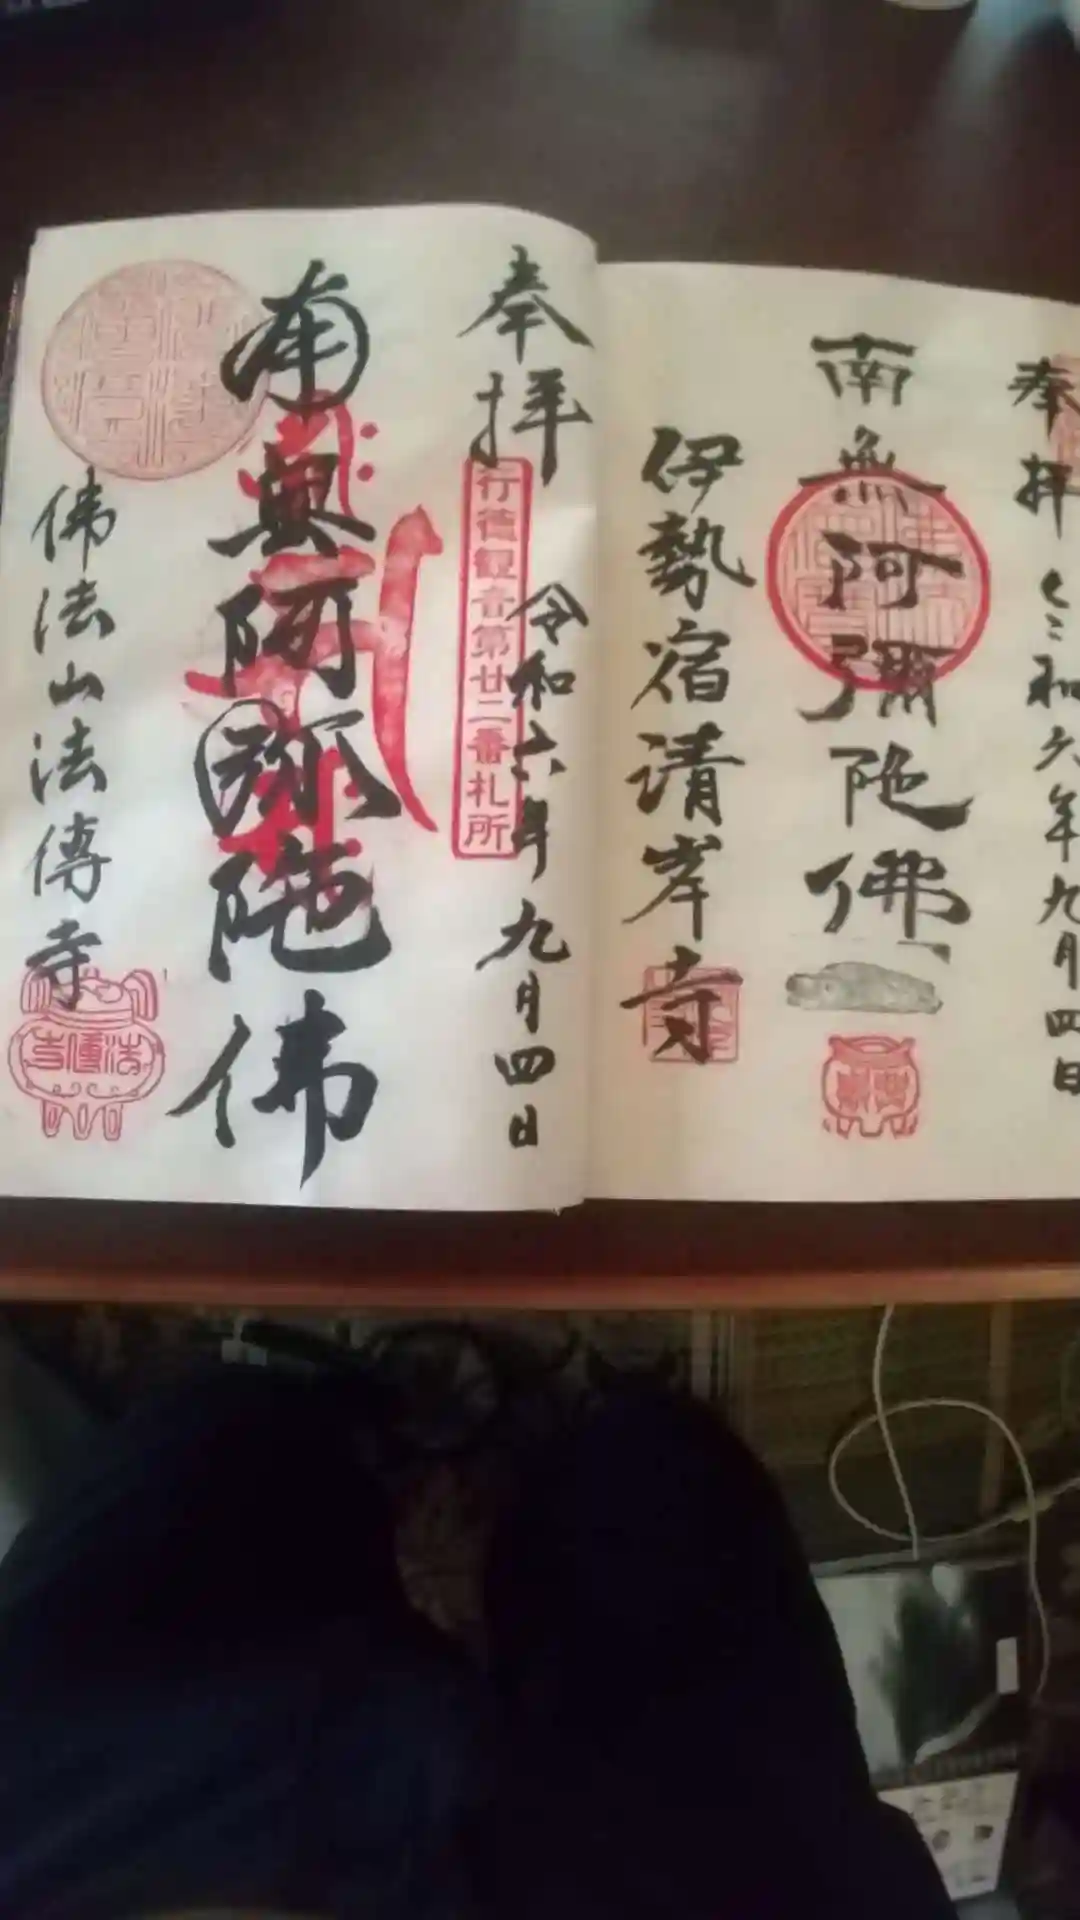 奉拝
令和六年九月四日
南無阿彌陀佛
伊勢宿清岸寺
奉拝
令和六年九月四日
行徳観音第廿二番札所
南無阿弥陀佛
佛法山法傳寺
法傳寺